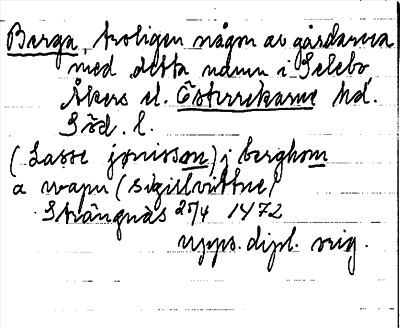 Berga, troligen någon av gårdarna
med detta namn i Selebo,
Åkers el. Österrekarne hd.
Söd. l.
(Lasse jonisson) j berghom
a wapn (sigillvittne)
Strängnäs 25/4 1472
upps. dipl. orig.